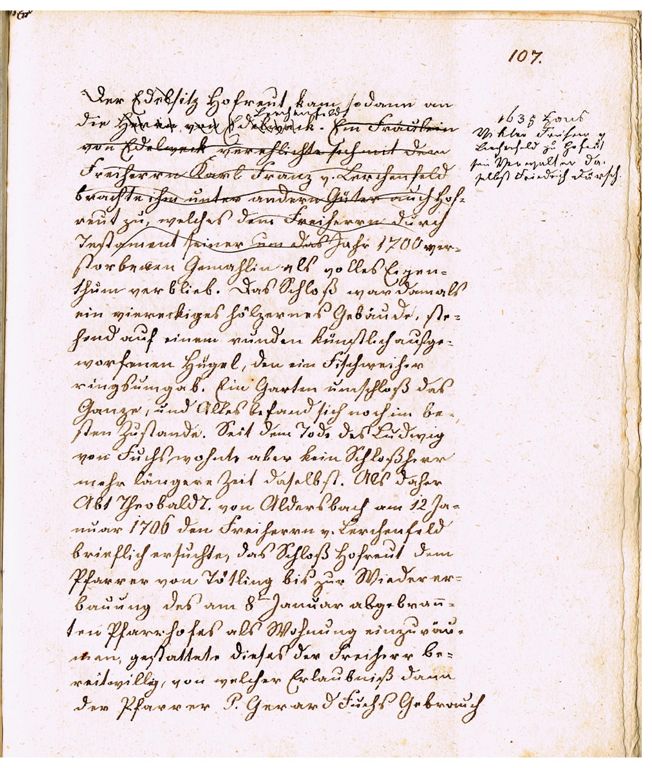 107.
Der Edelsitz Hofreut kam sodann an
die Herrn von Edelweck. Ein Fräulein
Lerchenfeld
von Edelweck verehlichte sich mit dem
Freiherrn Karl Franz v. Lerchenfeld
brachte ihm unter andern Güter auch Hof-
reut zu, welches dem Freiherrn durch
Testament seiner um das Jahr 1700 ver-
storbenen Gemahlin als volles Eigen-
thum verblieb. Das Schloß war damals
ein viereckiges hölzernes Gebäude, ste-
hend auf einem runden künstlich aufge-
worfenen Hügel, den ein Fischweiher
rings umgab. Ein Garten umschloß das
Ganze, und Alles befand sich noch im be-
sten Zustande. Seit dem Tode des Ludwig
von Fuchs wohnte aber kein Schloßherr
mehr längere Zeit daselbst. Als daher
Abt Theobald I. von Aldersbach am 12 Ja-
nuar 1706 den Freiherrn v. Lerchenfeld
brieflich ersuchte, das Schloß Hofreut dem
Pfarrer von Tötling bis zur Wiederer-
bauung des am 8 Januar abgebrann-
ten Pfarrhofes als Wohnung einzuräu-
men, gestattete dieses der Freiherr be-
reitwillig, von welcher Erlaubniß dann
der Pfarrer P. Gerard Fuchs Gebrauch
1635 Hans
Lerchenfeld zu Hofreut
sein Verwalter da-
selbst Friedrich